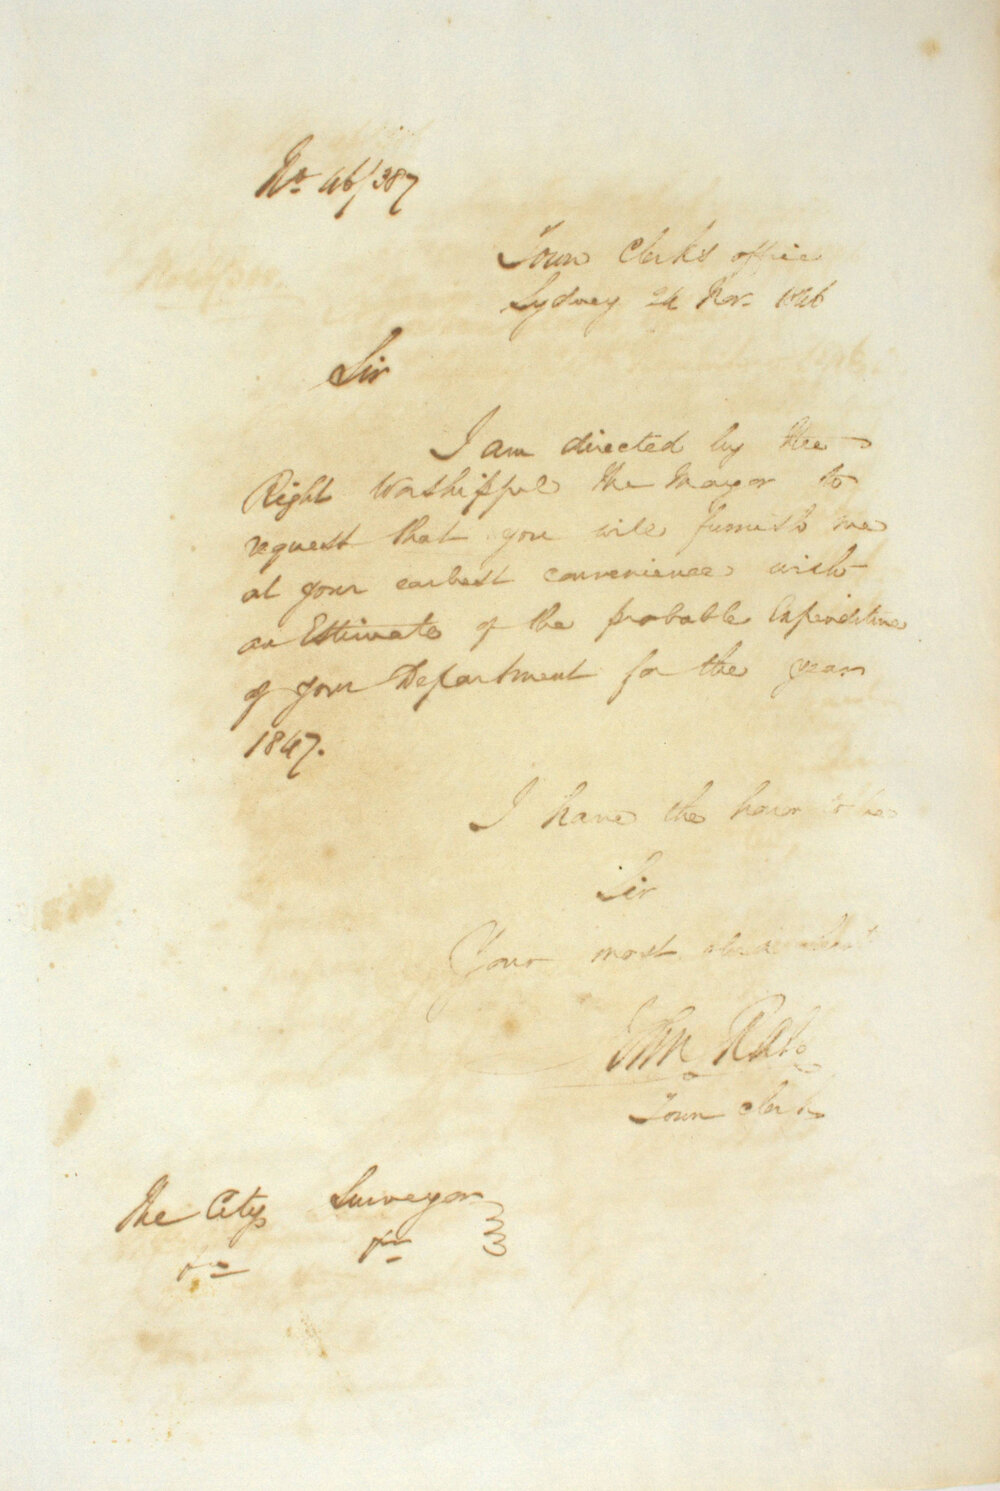 No 46/387
Town Clerks office
Sydney 24 Nov. 1846
Sir
I am directed by the
Right Worshipful the Mayor to
request that you will furnish me
at your earliest convenience with
an Estimate of the probable Expenditure
of your Department for the year
1847.
I have the honor to be
Sir
Your most obedient
John Rae
Town Clerk
The City Surveyor